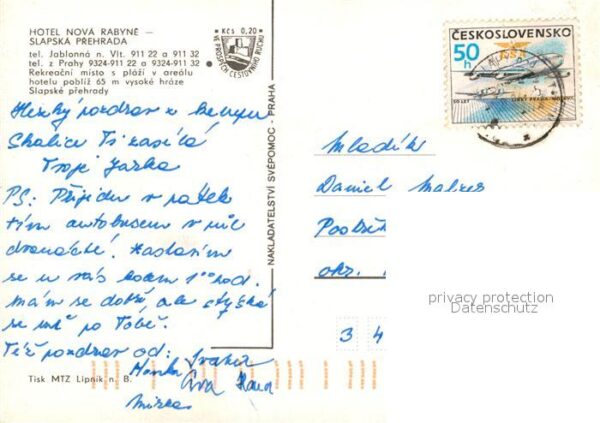 HOTEL NOVÁ RABYNĚ —
SLAPSKÁ PŘEHRADA
tel. Jablonná n. Vlt. 911 22 a 911 32
tel. z Prahy 9324-911 22 a 9324-911 32
Rekreační místo s pláží v areálu
hotelu poblíž 65 m vysoké hráze
Slapské přehrady
Kčs 0,20
VE PROSPĚCH CESTOVNÍHO RUCHU
Hezký pozdrav z kempu
Skalice Ti zasílá
Tvoje Jarka
PS: Přijedu v pátek
tím autobusem v půl
dvanácté. Zastavím
se u vás kolem 1°° hod.
Mám se dobře, ale stýská
se mě po Tobě.
Též pozdrav od:
Tisk MTZ Lipník n. B.
NAKLADATELSTVÍ SVÉPOMOC - PRAHA
ČESKOSLOVENSKO
50 h
Daniel
okr.
3 4
privacy protection
Datenschutz